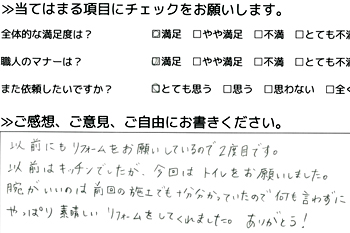 ≫当てはまる項目にチェックをお願いします。
全体的な満足度は？ ☑満足 □やや満足 □不満 □とても不満
職人のマナーは？ ☑満足 □やや満足 □不満 □とても不満
また依頼したいですか？ ☑とても思う □思う □思わない □全く
≫ご感想、ご意見、ご自由にお書きください。
以前にもリフォームをお願いしているので2度目です。
以前はキッチンでしたが、今回はトイレをお願いしました。
腕がいいのは前回の施工でも十分分かっていたので何も言わずに
やっぱり素晴しいリフォームをしてくれました。ありがとう！